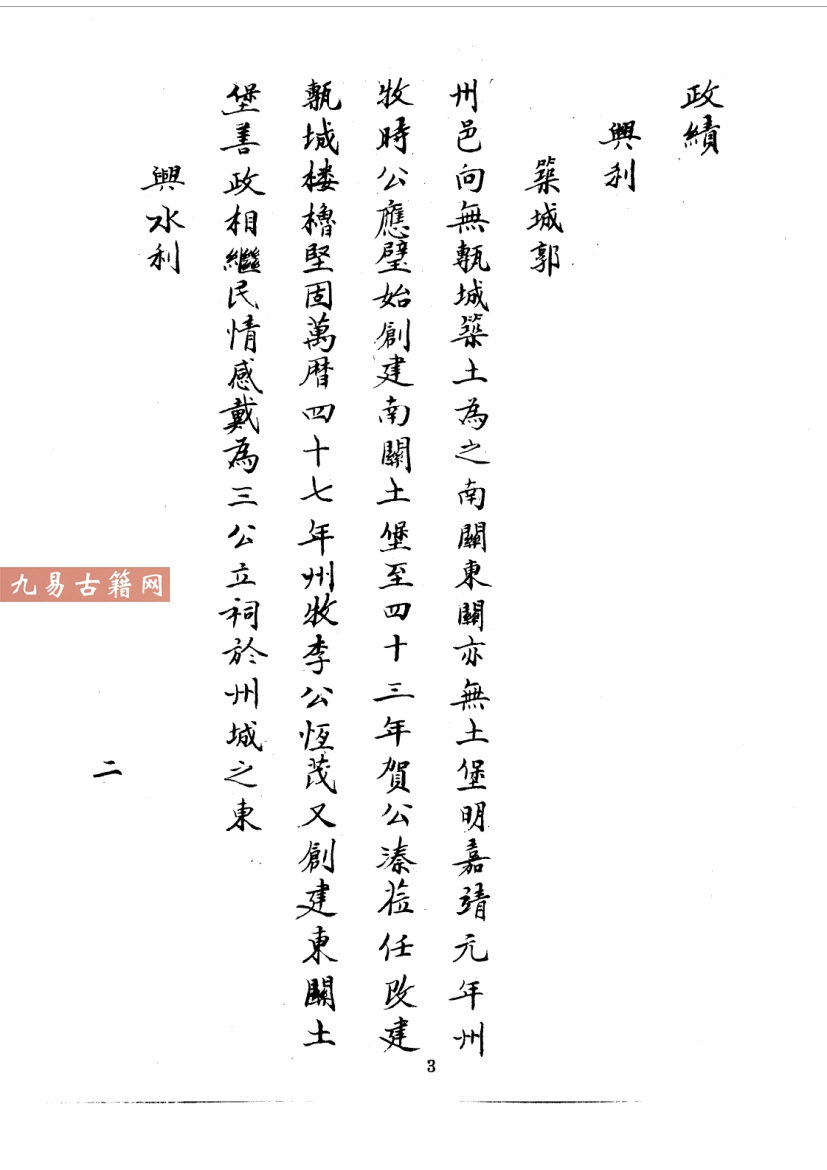 政績
興利
築城郭
州邑向無甎城築土為之南關東關亦無土堡明嘉靖元年州
牧時公應璧始創建南關土堡至四十三年賀公溱蒞任改建
甎城楼櫓堅固萬曆四十七年州牧李公恆茂又創建東關土
堡善政相繼民情感戴為三公立祠於州城之東
興水利
二
3
九易古籍网